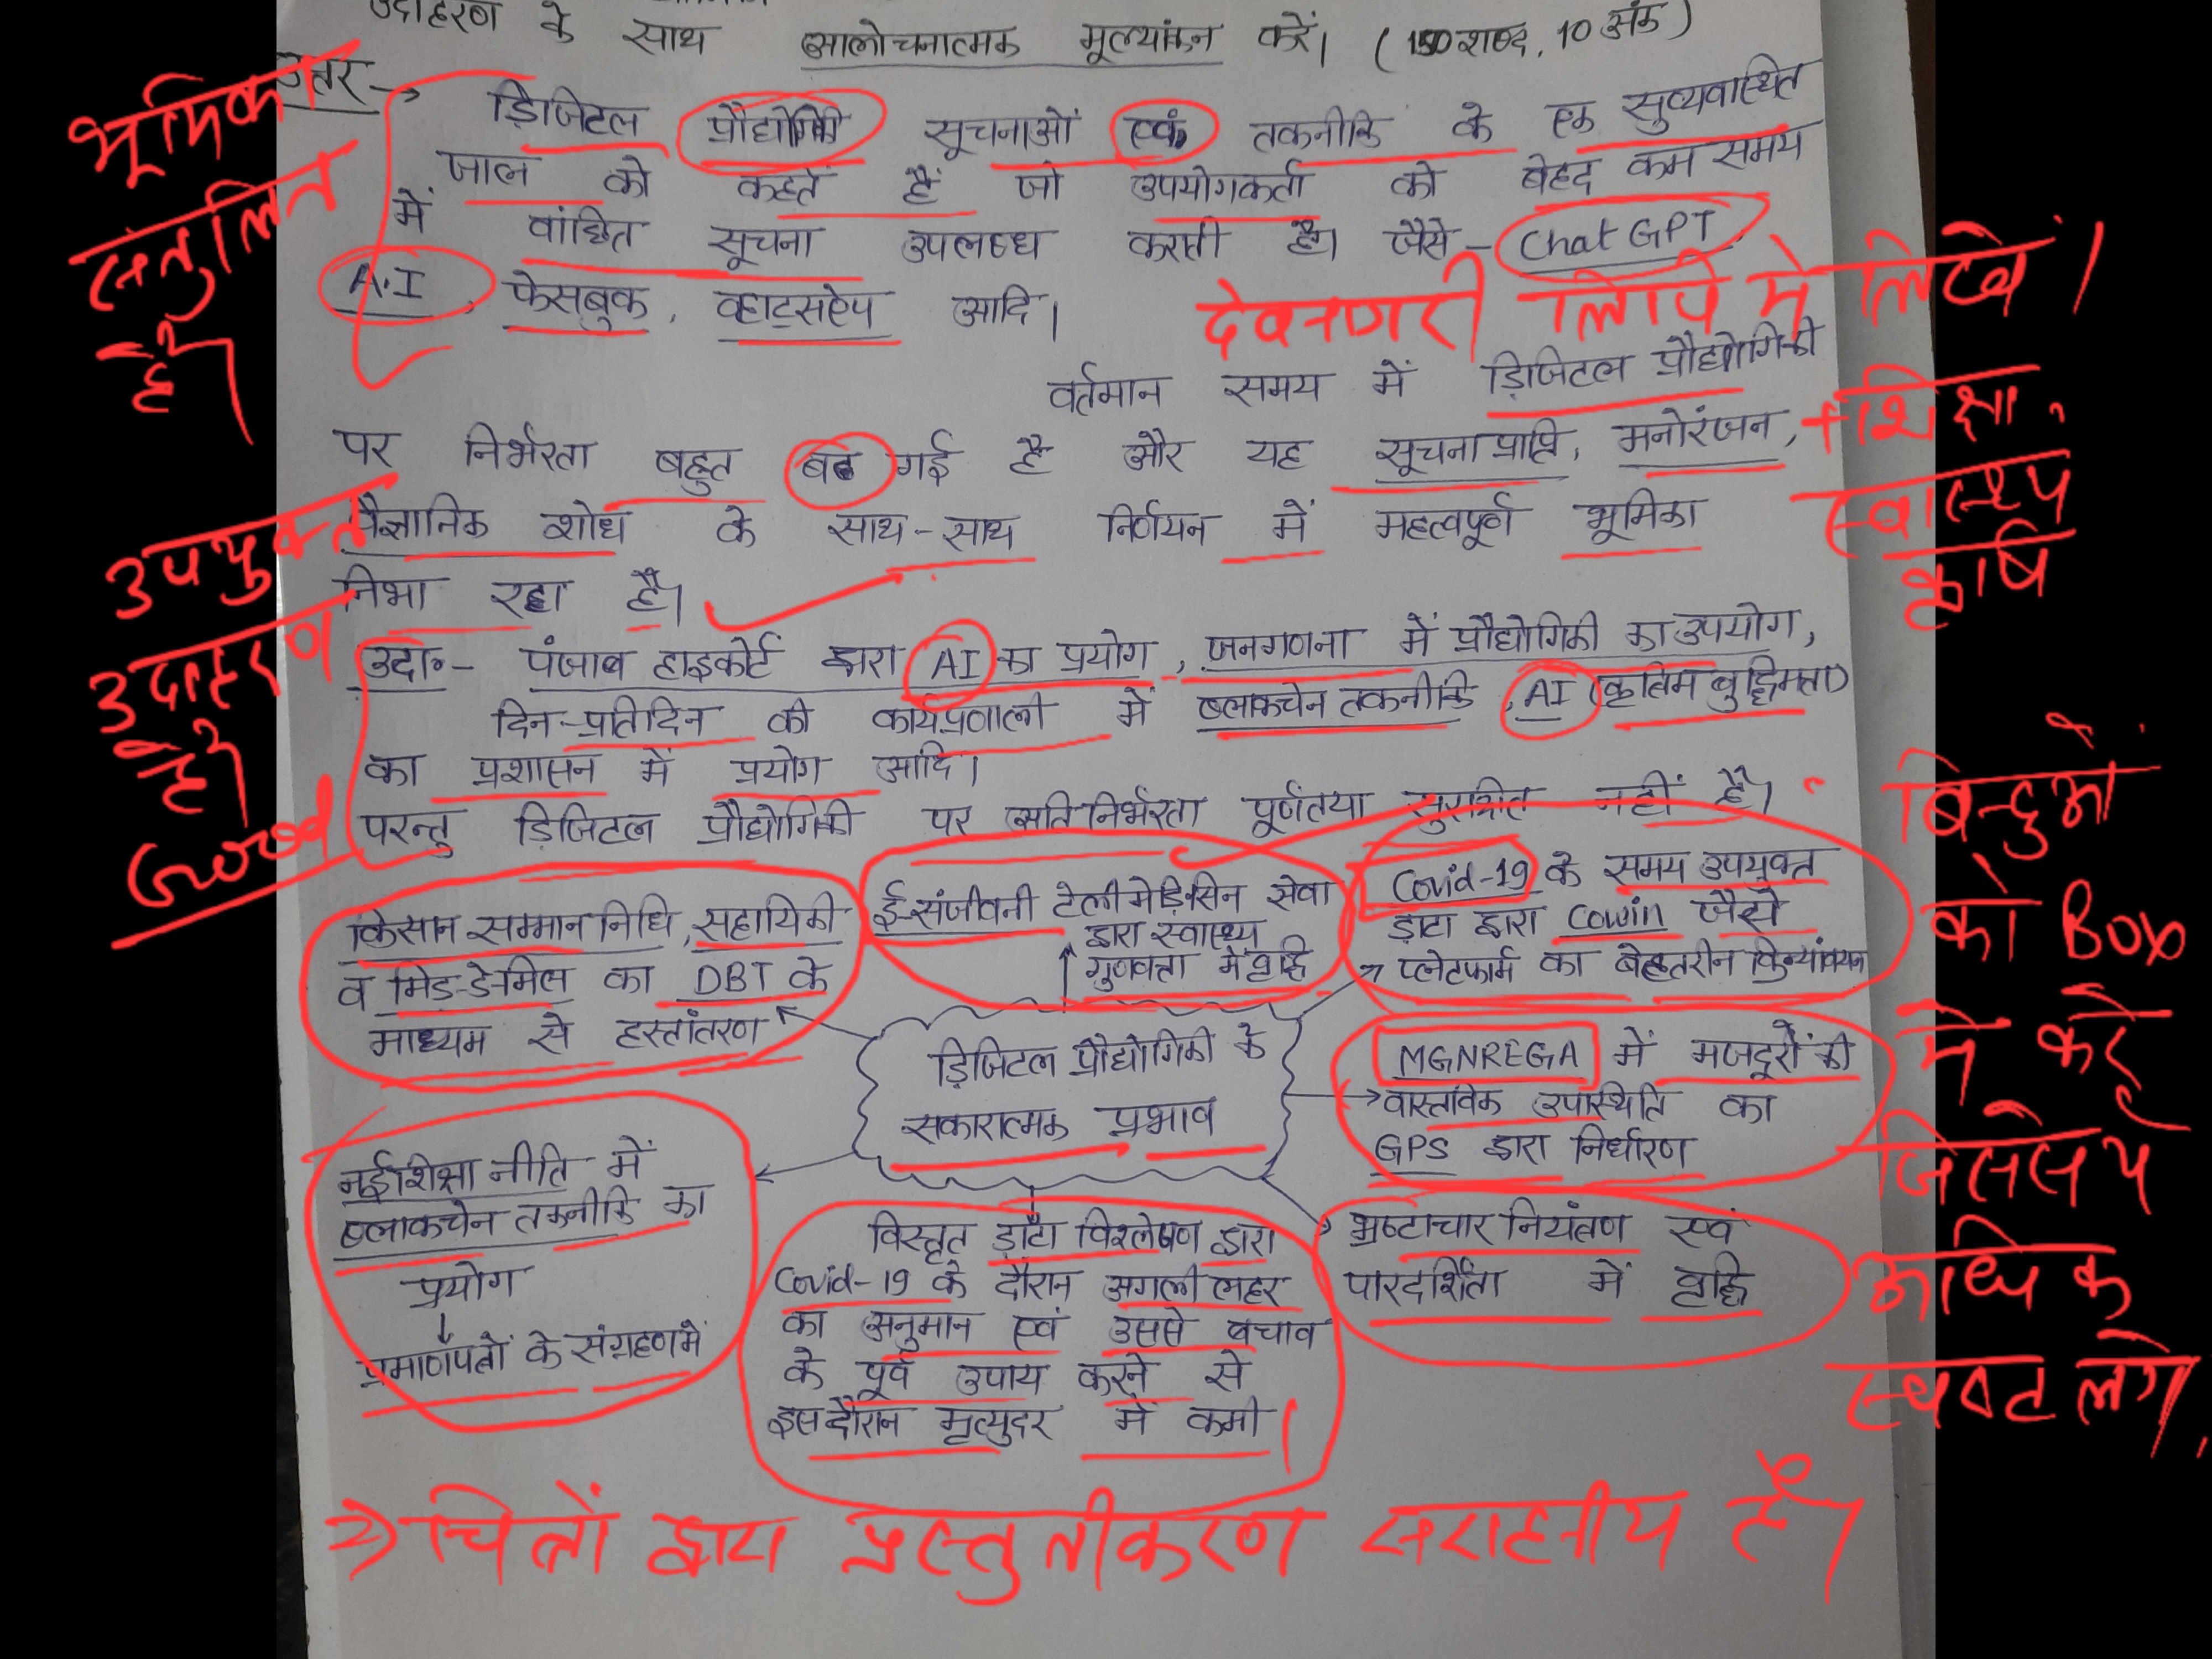 उदाहरण के साथ आलोचनात्मक मूल्यांकन करें। (150 शब्द, 10 अंक)
उत्तर →
डिजिटल प्रौद्योगिकी सूचनाओं एवं तकनीकि के एक सुव्यवस्थित
जाल को कहते हैं जो उपयोगकर्ता को बेहद कम समय
में वांछित सूचना उपलब्ध कराती है। जैसे - Chat GPT,
A.I, फेसबुक, व्हाट्सएप आदि।
भूमिका
संतुलित
है।
देवनागरी लिपि मे लिखें।
वर्तमान समय में डिजिटल प्रौद्योगिकी
पर निर्भरता बहुत बढ गई है और यह सूचना प्राप्ति, मनोरंजन,
वैज्ञानिक शोध के साथ-साथ निर्णयन में महत्वपूर्ण भूमिका
निभा रहा है।
+ शिक्षा,
स्वास्थ्य
कृषि
उदा॰- पंजाब हाइकोर्ट द्वारा AI का प्रयोग, जनगणना में प्रौद्योगिकी का उपयोग,
दिन-प्रतिदिन की कार्यप्रणाली में ब्लाकचेन तकनीकि, AI (कृत्रिम बुद्धिमत्ता)
का प्रशासन में प्रयोग आदि।
उपयुक्त
उदाहरण
है।
Good
परन्तु डिजिटल प्रौद्योगिकी पर अतिनिर्भरता पूर्णतया सुरक्षित नहीं है।
किसान सम्मान निधि, सहायिकी
व मिड-डे-मिल का DBT के
माध्यम से हस्तांतरण
ई-संजीवनी टेलीमेडिसिन सेवा
द्वारा स्वास्थ्य
गुणवत्ता में वृद्धि
Covid-19 के समय उपयुक्त
डाटा द्वारा Cowin जैसे
प्लेटफार्म का बेहतरीन क्रियान्वयन
डिजिटल प्रौद्योगिकी के
सकारात्मक प्रभाव
MGNREGA में मजदूरों की
वास्तविक उपस्थिति का
GPS द्वारा निर्धारण
नई शिक्षा नीति में
ब्लाकचेन तकनीकि का
प्रयोग
↓
प्रमाणपत्रों के संग्रहण में
विस्तृत डाटा विश्लेषण द्वारा
Covid-19 के दौरान अगली लहर
का अनुमान एवं उससे बचाव
के पूर्व उपाय करने से
इस दौरान मृत्युदर में कमी
भ्रष्टाचार नियंत्रण एवं
पारदर्शिता में वृद्धि
बिन्दुओं
को Box
मे करें
जिससे ये
अधिक
स्पष्ट लगे।
⇒ चित्रों द्वारा प्रस्तुतीकरण सराहनीय है।